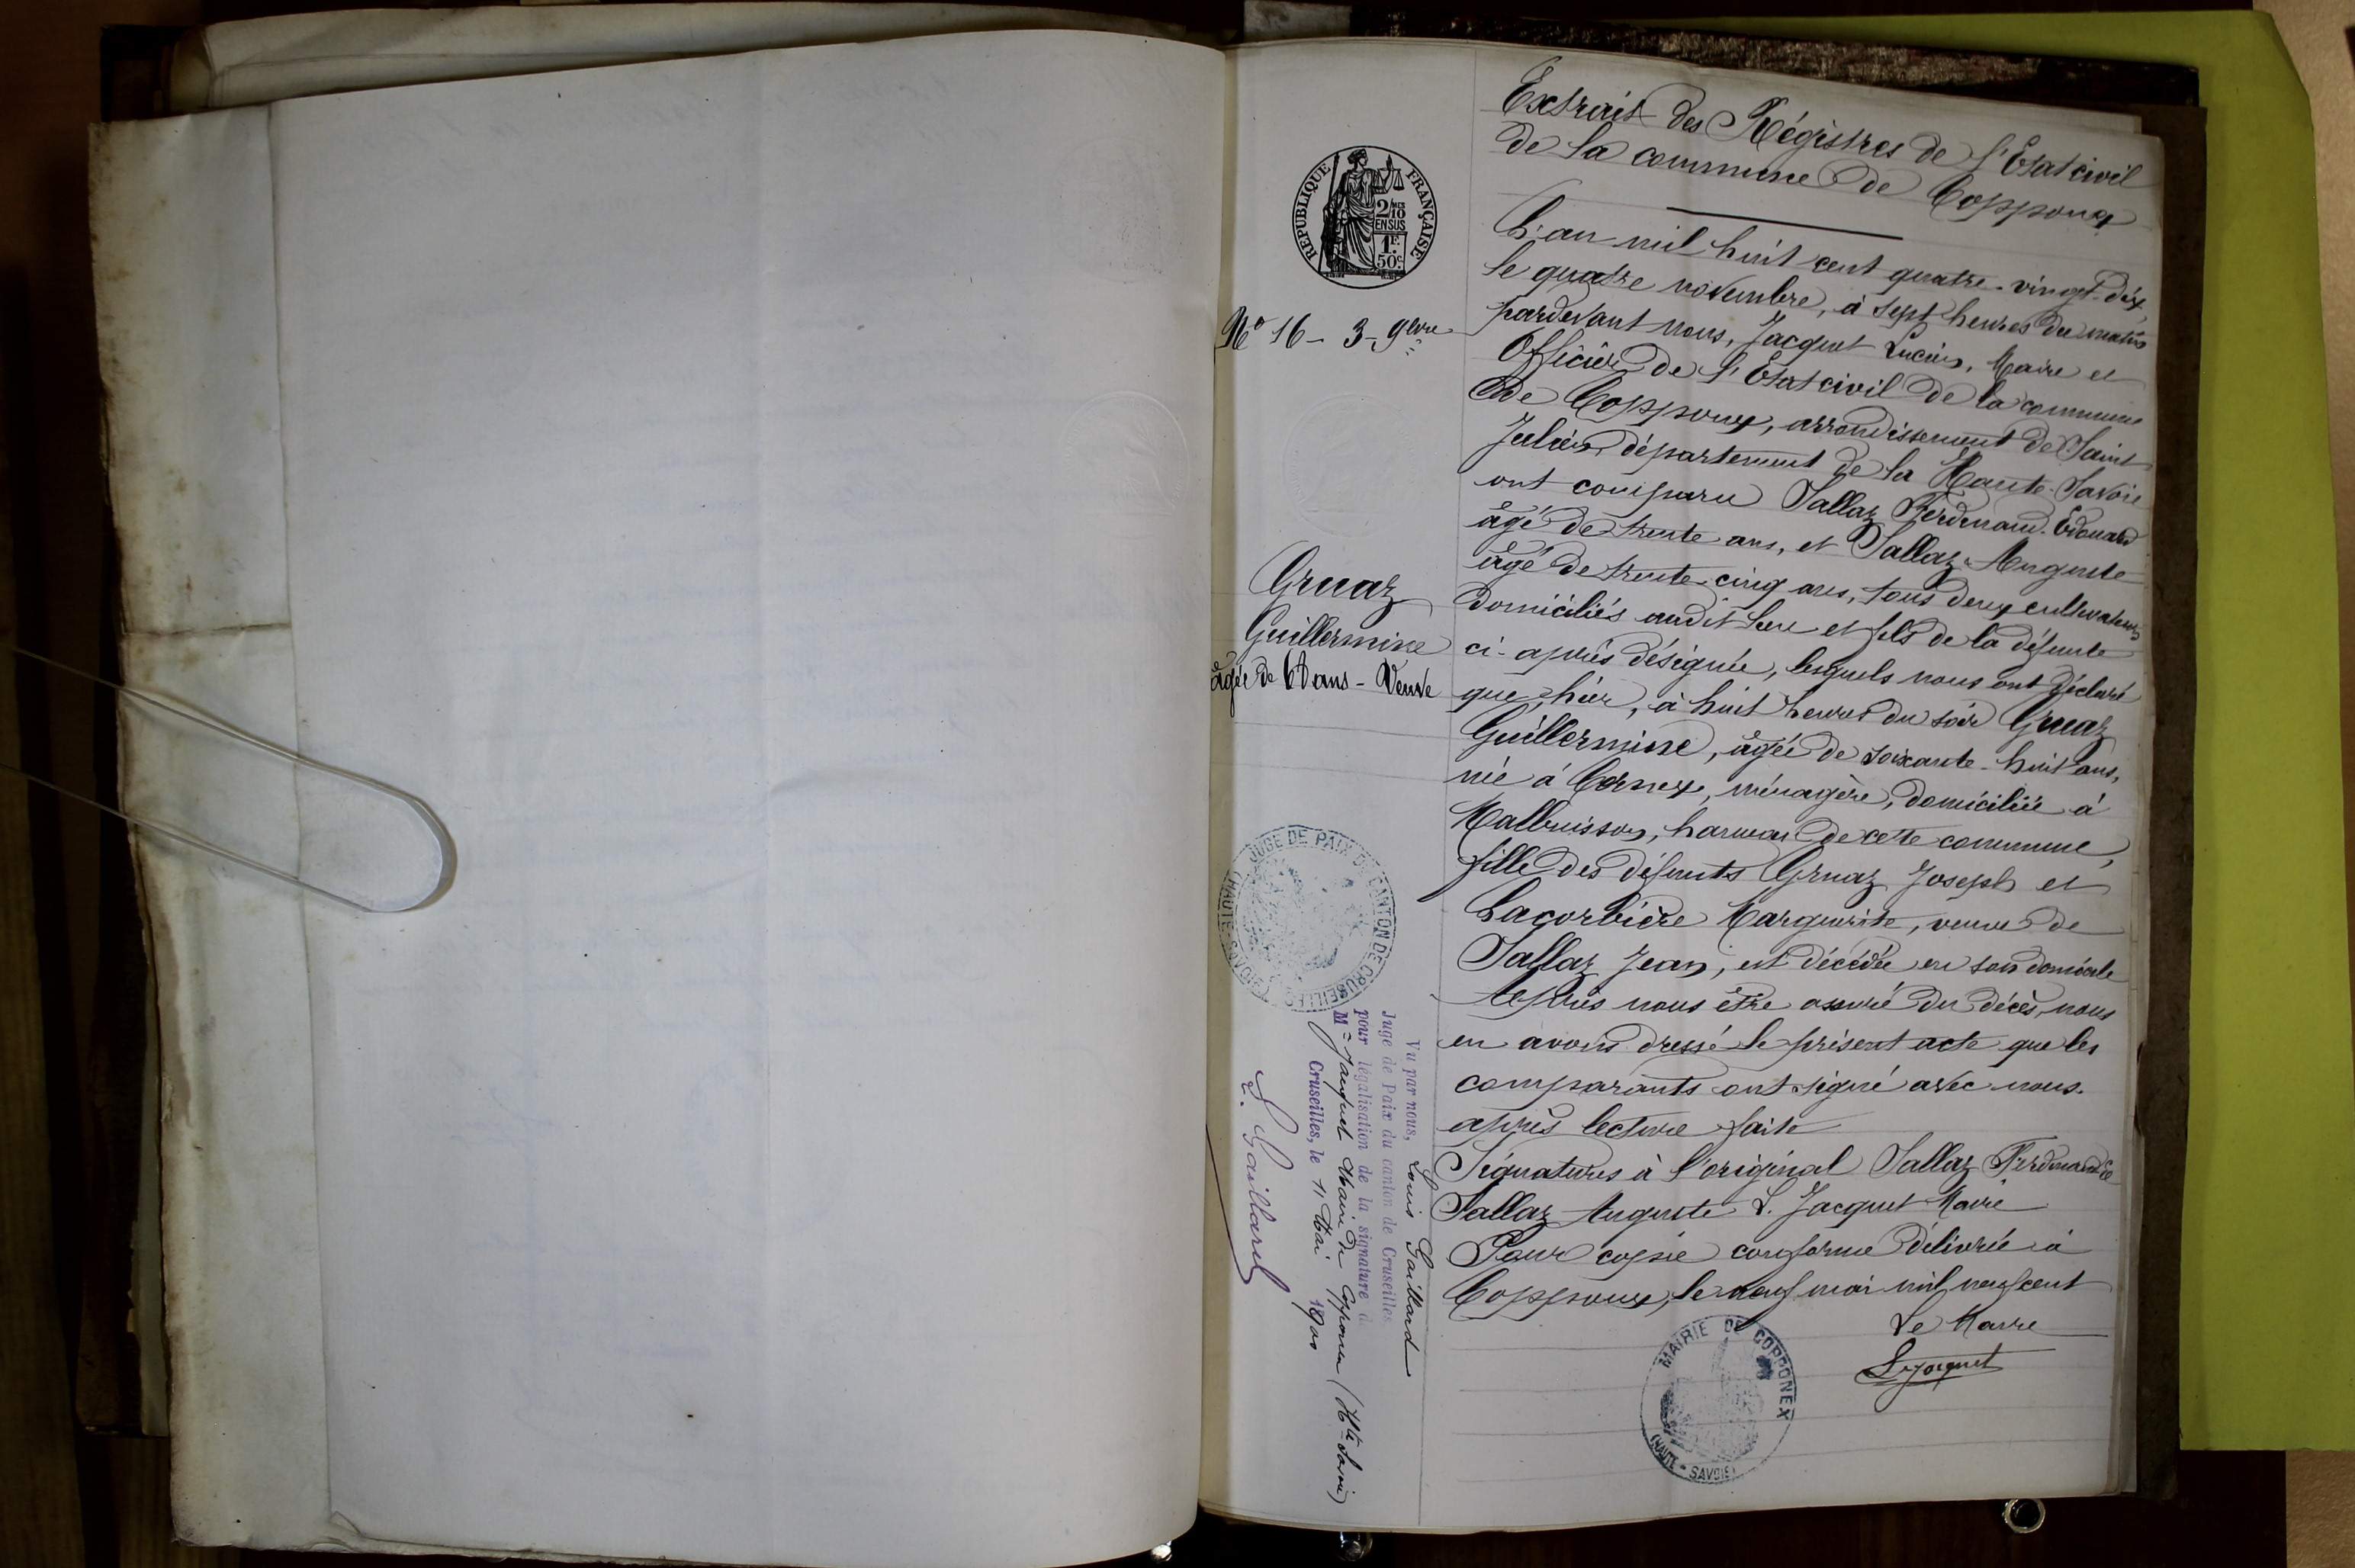 Extrait des Régistres de l'Etat civil
de la commune de Copponex
REPUBLIQUE FRANÇAISE
2/10 MES
EN SUS
1F.
50c.
L'an mil huit cent quatre-vingt-dix,
le quatre novembre, à sept heures du matin
N° 16 - 3 - 9bre
pardevant nous, Jacquet Lucien, Maire et
Officier de l'Etat civil de la commune
de Copponex, arrondissement de Saint
Julien département de la Haute-Savoie
ont comparu Sallaz Ferdinand-Edouard
âgé de trente ans, et Sallaz Auguste
âgé de trente-cinq ans, tous deux cultivateurs
domiciliés audit lieu et fils de la défunte
ci-après désignée, lesquels nous ont déclaré
que, hier, à huit heures du soir Gruaz
Guillermine, âgée de soixante-huit ans,
née à Cernex, ménagère, domiciliée à
Malbuisson, hameau de cette commune,
fille des défunts Gruaz Joseph et
Lacorbière Marguerite, veuve de
Sallaz Jean, est décédée en son domicile
Après nous être assuré du décès, nous
en avons dressé le présent acte que les
comparants ont signé avec nous.
après lecture faite
Signatures à l'original Sallaz Ferdinand E
Sallaz Auguste L. Jacquet Maire
Pour copie conforme délivrée à
Copponex, le neuf mai mil neuf cent
Le Maire
L. Jacquet
MAIRIE DE COPPONEX
(HAUTE-SAVOIE)
Gruaz
Guillermine
âgée de 68 ans - Veuve
JUGE DE PAIX DU CANTON DE CRUSEILLES
(HAUTE-SAVOIE)
Vu par nous, Louis Gaillard
Juge de Paix du canton de Cruseilles
pour légalisation de la signature de
M= Jacquet Maire de Copponex (Hte-Savoie)
Cruseilles, le 11 Mai 1900
L. Gaillard